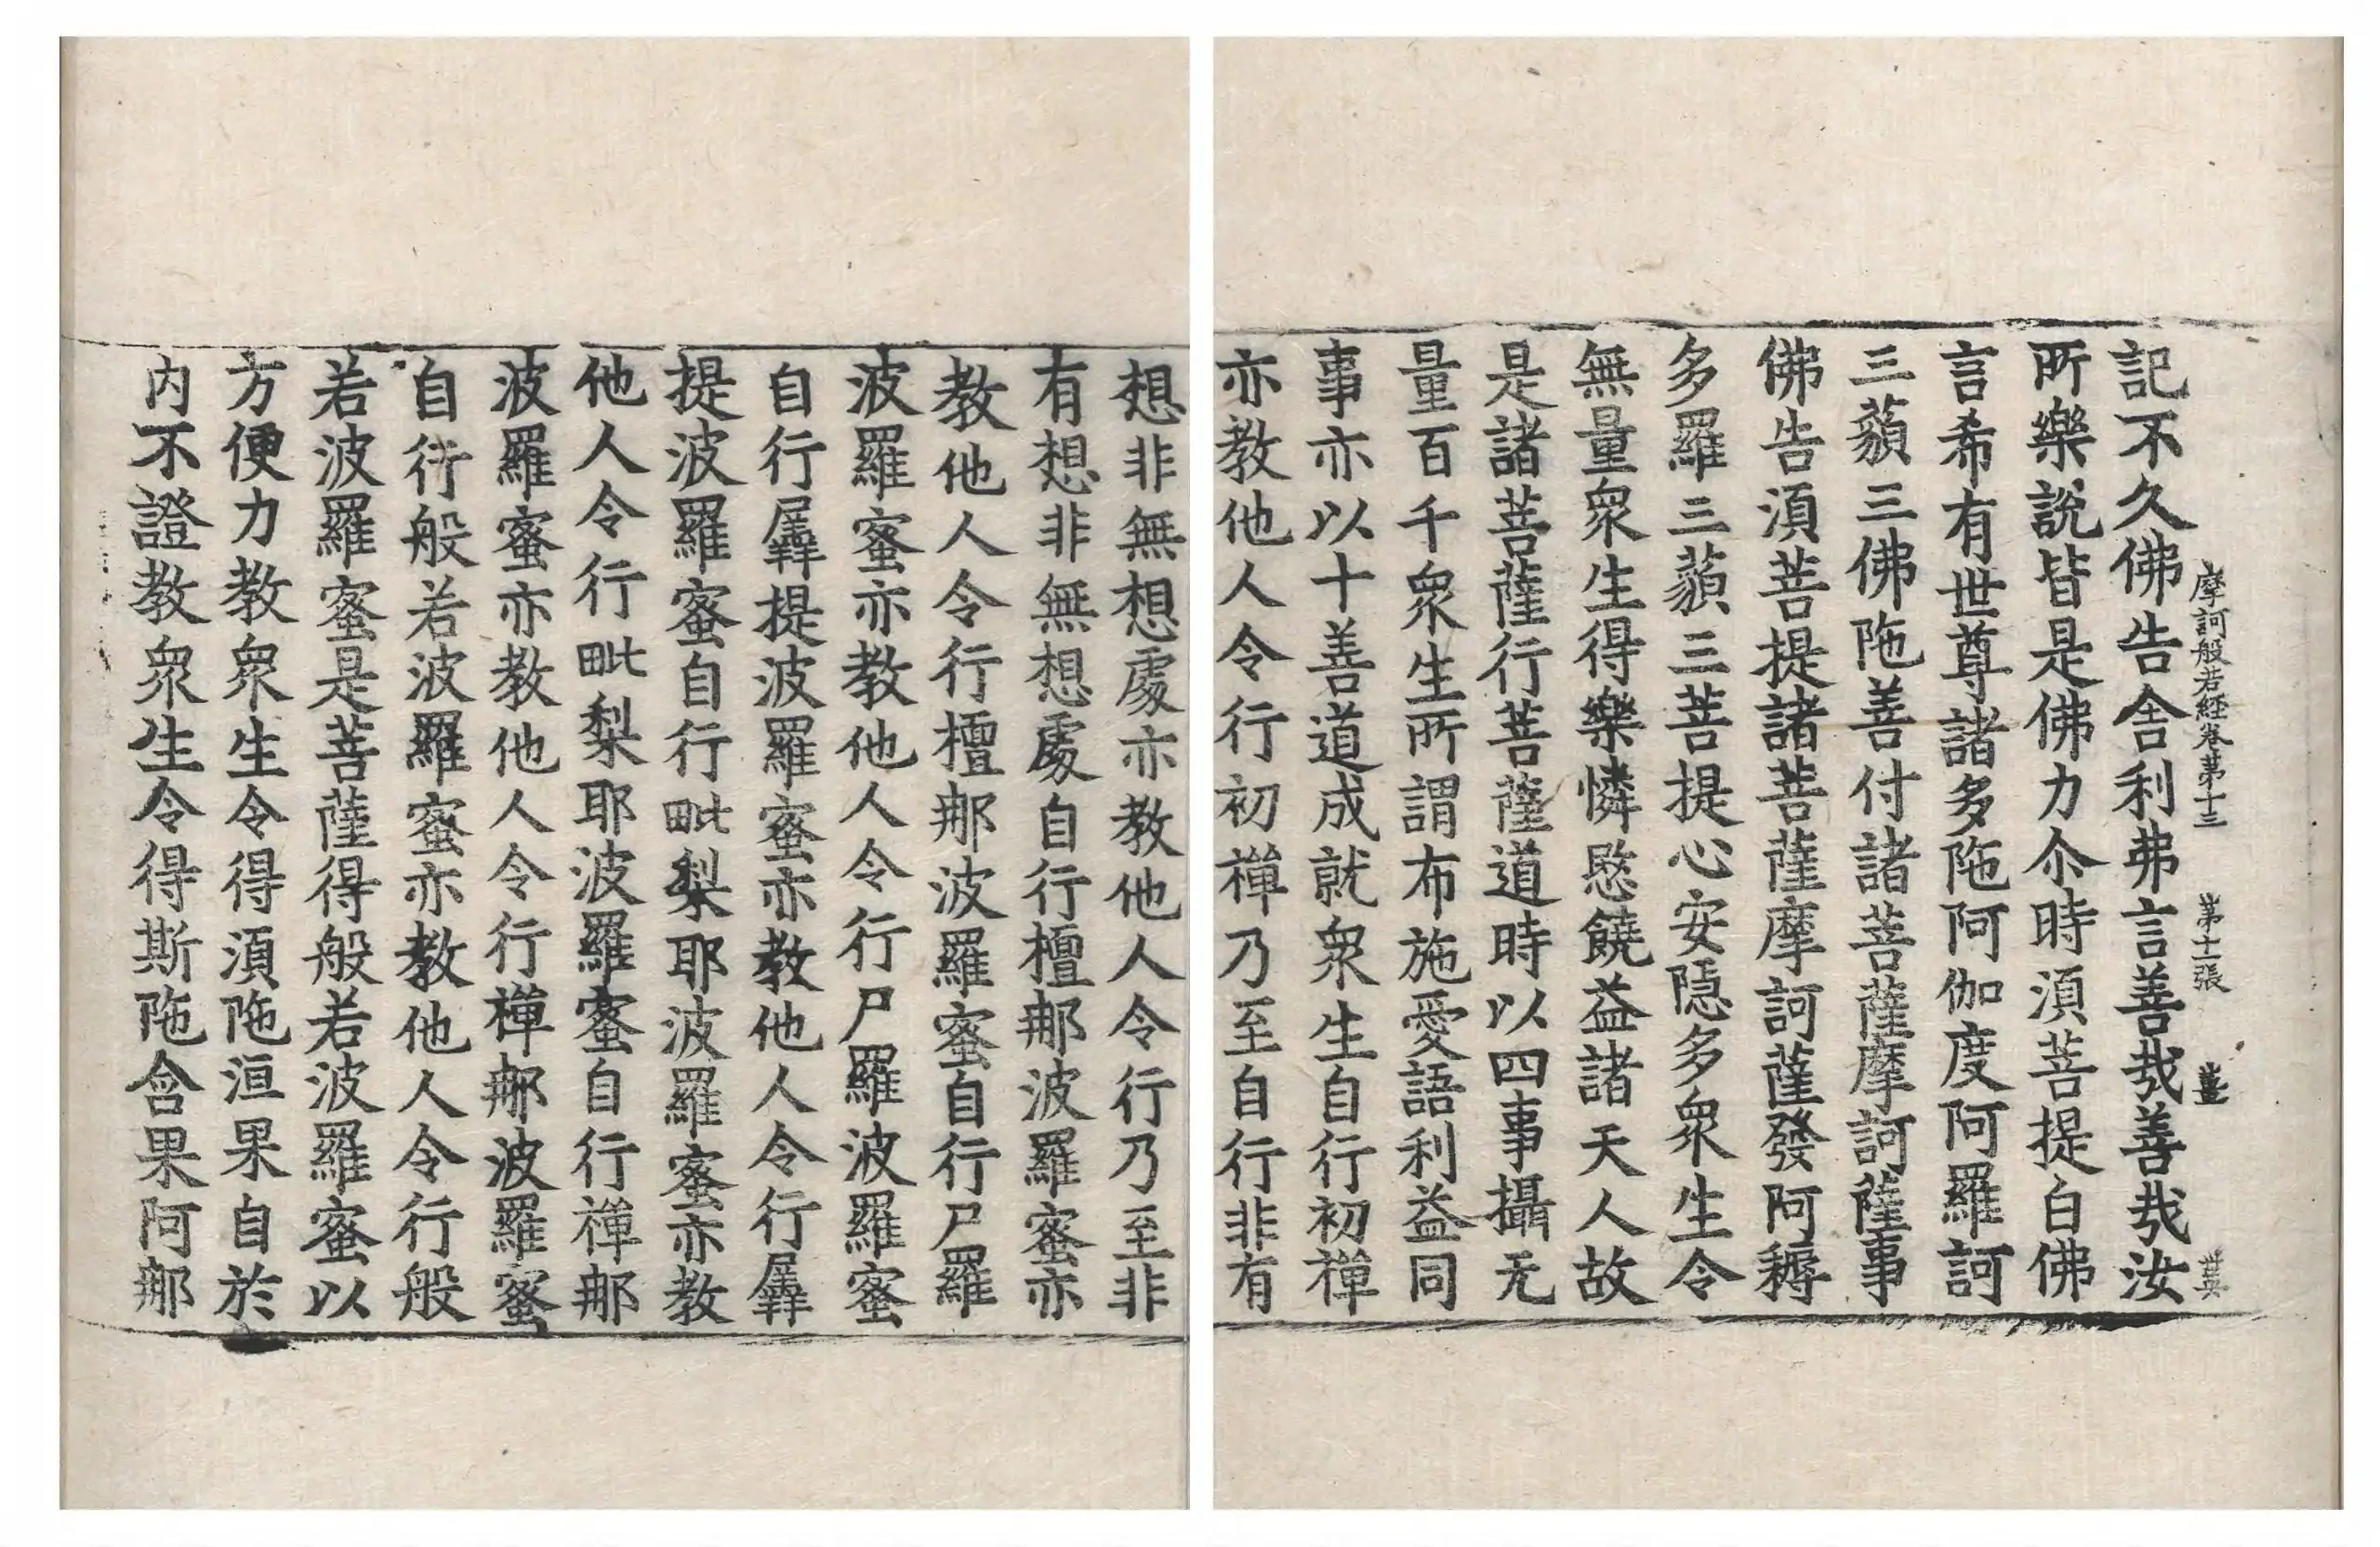 摩訶般若經卷第十三 第十一張 薑
記不久佛告舍利弗言善哉善哉汝
所樂說皆是佛力尒時湏菩提白佛
言希有世尊諸多陁阿伽度阿羅訶
三藐三佛陁善付諸菩薩摩訶薩事
佛告湏菩提諸菩薩摩訶薩發阿耨
多羅三藐三菩提心安隱多衆生令
無量衆生得樂憐愍饒益諸天人故
是諸菩薩行菩薩道時以四事攝无
量百千衆生所謂布施愛語利益同
事亦以十善道成就衆生自行初禪
亦教他人令行初禪乃至自行非有
想非無想處亦教他人令行乃至非
有想非無想處自行檀那波羅蜜亦
教他人令行檀那波羅蜜自行尸羅
波羅蜜亦教他人令行尸羅波羅蜜
自行羼提波羅蜜亦教他人令行羼
提波羅蜜自行毗梨耶波羅蜜亦教
他人令行毗梨耶波羅蜜自行禪那
波羅蜜亦教他人令行禪那波羅蜜
自行般若波羅蜜亦教他人令行般
若波羅蜜是菩薩得般若波羅蜜以
方便力教衆生令得湏陁洹果自於
内不證教衆生令得斯陁含果阿那